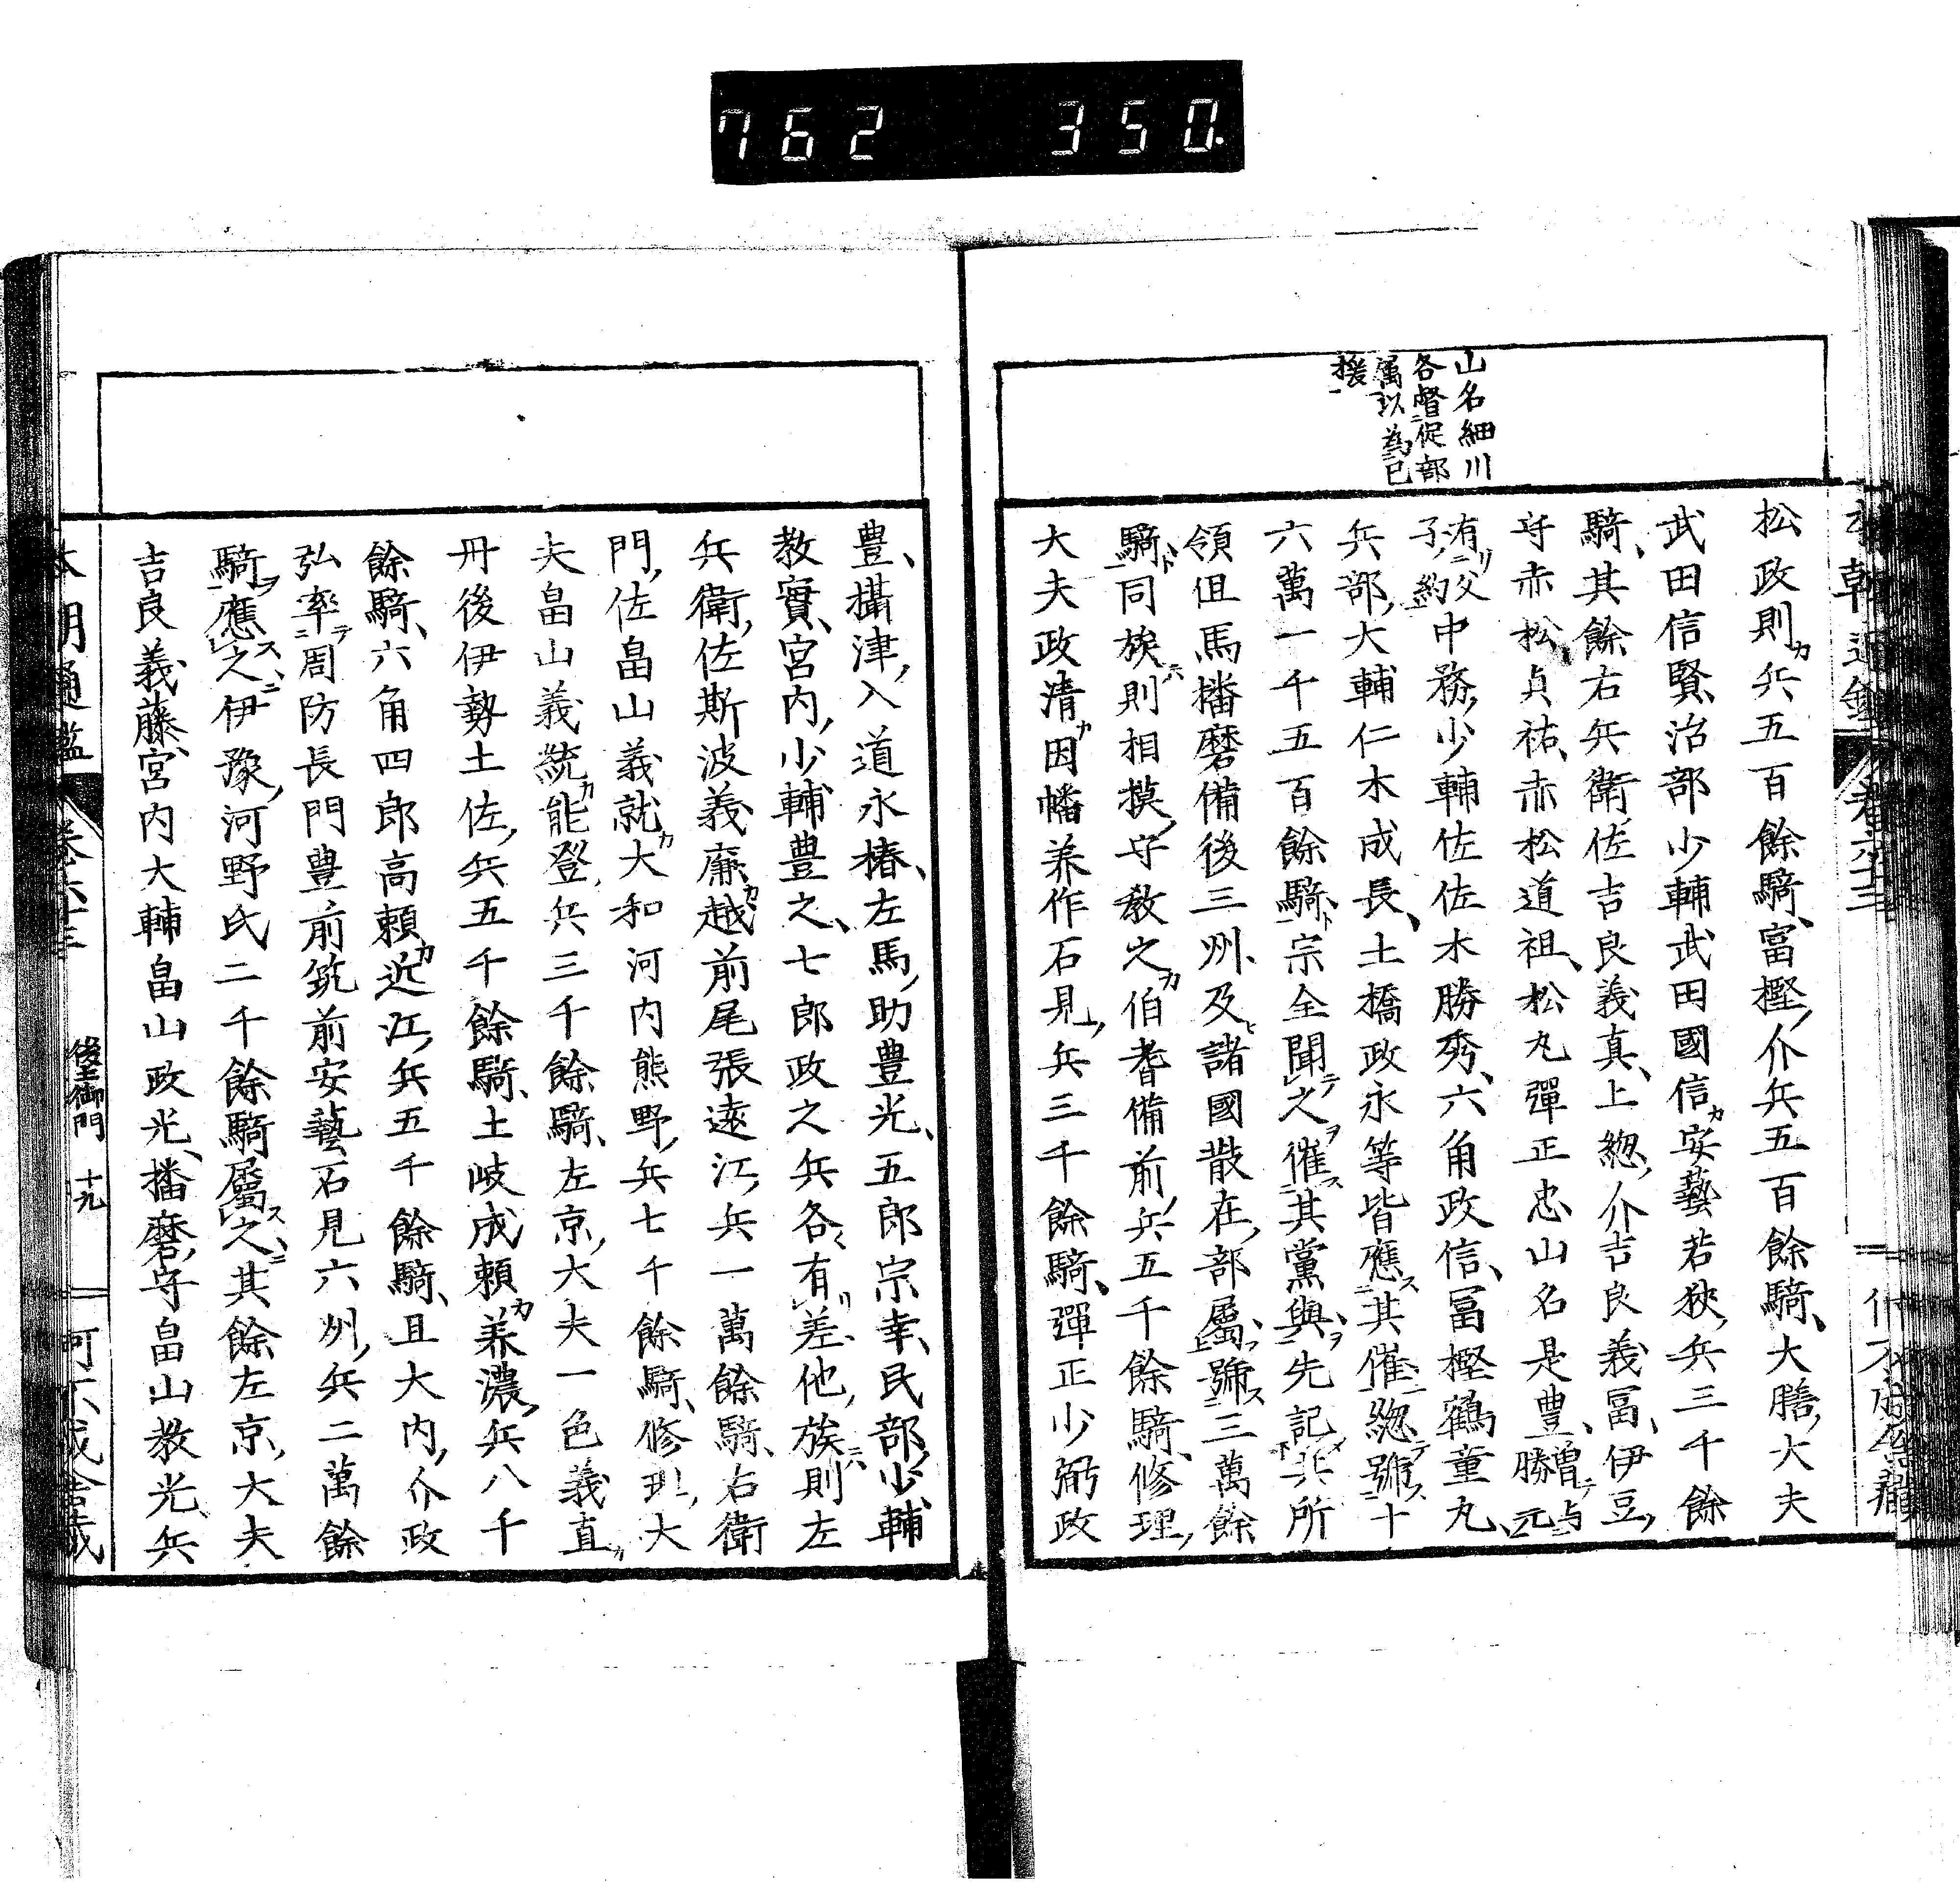 762 350.
山名細川
各督促部
属以為己
援
松政則カ兵五百餘騎、富樫介兵五百餘騎、大膳大夫
武田信賢、治部少輔武田國信カ安藝若狹兵三千餘
騎、其餘右兵衛佐吉良義真、上総介吉良義冨、伊豆
守赤松貞祐、赤松道祖松丸彈正忠山名是豊、曽与勝元
有父子約中務少輔佐佐木勝秀、六角政信、冨樫鶴童丸
兵部大輔仁木成長、土橋政永等皆應其催総號十
六萬一千五百餘騎ト宗全聞之催其黨與ヲ先記其所
領但馬播磨備後三州及諸國散在部屬號三萬餘
騎ト同族ハ則相摸守教之カ伯耆備前兵五千餘騎、修理
大夫政清カ因幡美作石見兵三千餘騎、彈正少弼政
豊、攝津入道永椿、左馬助豊光、五郎宗幸、民部少輔
教實、宮内少輔豊之、七郎政之兵各有差他族ハ則左
兵衛佐斯波義廉カ越前尾張遠江兵一萬餘騎、右衛
門佐畠山義就カ大和河内熊野兵七千餘騎、修理大
夫畠山義統カ能登兵三千餘騎、左京大夫一色義直カ
丹後伊勢土佐兵五千餘騎、土岐成頼カ美濃兵八千
餘騎、六角四郎高頼カ近江兵五千餘騎、且大内介政
弘率テ周防長門豊前筑前安藝石見六州兵二萬餘
騎ヲ應之伊豫河野氏二千餘騎屬之其餘左京大夫
吉良義藤、宮内大輔畠山政光、播磨守畠山教光、兵
本朝通鑑 卷六十三 後土御門 十九